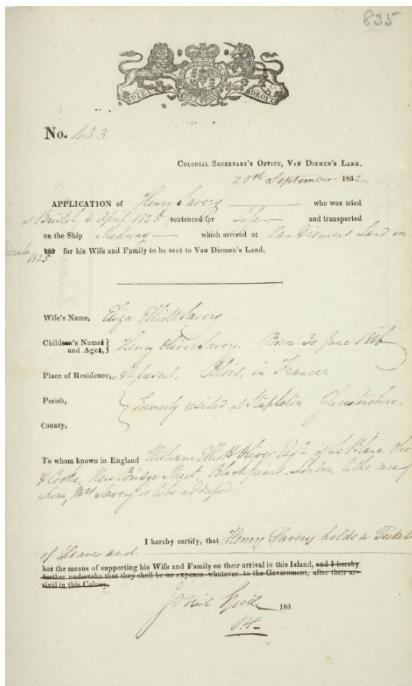 835
DIEU ET MON DROIT
No. 433
COLONIAL SECRETARY'S OFFICE, VAN DIEMEN'S LAND.
20th September 1832
APPLICATION of Henry Savery who was tried
at Bristol 4 April 1825 sentenced for Life and transported
on the Ship Medway which arrived at Van Diemens Land in
December 1825 for his Wife and Family to be sent to Van Diemen's Land.
Wife's Name, Eliza Elliott Savery
Children's Names and Ages, Henry Oliver Savery. Born 30 June 1816
Place of Residence, At present, Blois, in France
Parish, Formerly resided at Stapleton, Glocestershire.
County,
To whom known in England William Elliott Oliver Esqr of
& Cooke, New Bridge Street Blackfriars London to the care of
whom, Mrs Savery is to be addressed.
I hereby certify, that Henry Savery holds a Ticket
of Leave and
has the means of supporting his Wife and Family on their arrival in this Island, and I hereby
further undertake that they shall be no expense whatever to the Government, after their ar-
rival in this Colony.
183